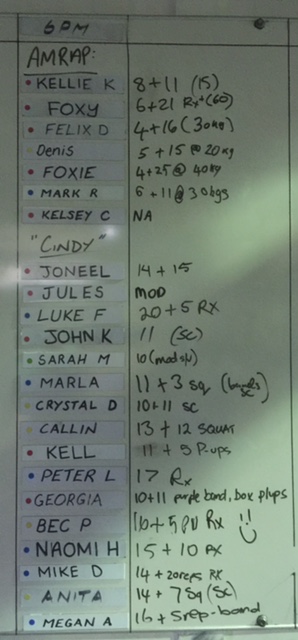 6PM
AMRAP:
KELLIE K 8+11 (15)
FOXY 6+21 Rx+(60)
FELIX D 4+16 (30kg)
Denis 5+15 @ 20kg
FOXIE 4+25 @ 40kg
MARK R 6+11 @ 30kgs
KELSEY C NA
"CINDY"
JONEEL 14+15
JULES MOD
LUKE F 20+5 RX
JOHN K 11 (SC)
SARAH M 10 (mod s/n)
MARLA 11+3 Sq (bands SC)
CRYSTAL D 10+11 SC
CALLIN 13+12 SQUAT
KELL 11+9 P-ups
PETER L 17 Rx
GEORGIA 10+11 purple band, box plups
BEC P 16+5 PU Rx !!
NAOMI H 15+10 RX
MIKE D 14+20reps RX
ANITA 14+7 Sq (SC)
MEGAN A 16+5rep-band